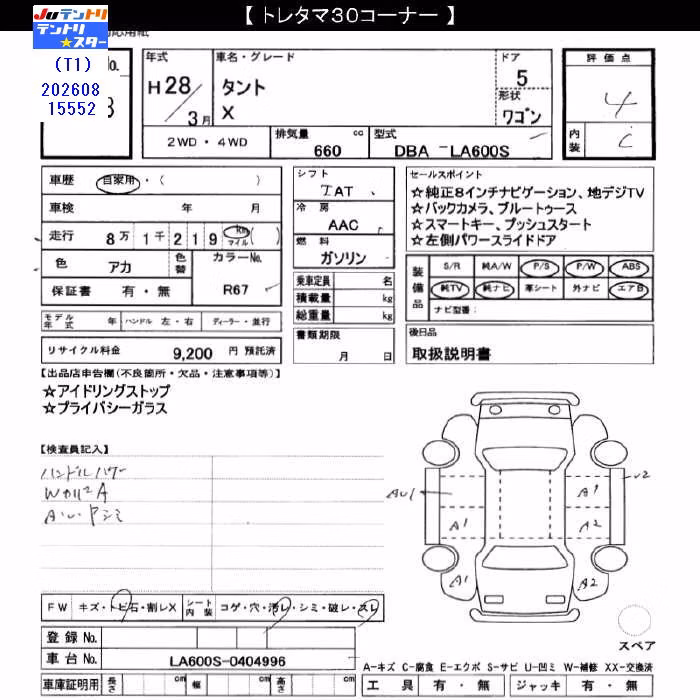 【トレタマ30コーナー】
JUテントリ
テントリ★スター
応用紙
(T1)
202608
15552
No.
3
年式
車名・グレード
ドア
評価点
H28/3月
タント
X
5
形状
ワゴン
4
内装
C
2WD・4WD
排気量 cc
660
型式
DBA -LA600S
車歴 自家用・( )
シフト
IAT
セールスポイント
☆純正8インチナビゲーション、地デジTV
☆バックカメラ、ブルートゥース
☆スマートキー、プッシュスタート
☆左側パワースライドドア
車検 年 月
冷房
AAC
走行 8万1千219 km マイル ( )
燃料
ガソリン
色 アカ
色替
カラーNo.
R67
保証書 有・無
乗車定員 名
積載量 kg
総重量 kg
装備品
S/R 純A/W P/S P/W ABS
純TV 純ナビ 革シート 外ナビ エアB
ナビ型番:
モデル年式 年 ハンドル 左・右 ディーラー・並行
書類期限
月 日
後日品
取扱説明書
リサイクル料金 9,200 円 預託済
【出品店申告欄(不良箇所・欠品・注意事項等)】
☆アイドリングストップ
☆プライバシーガラス
【検査員記入】
A1
A2
A1
A2
A1
FW キズ・トビ石・割レX
シート内装 コゲ・穴・汚レ・シミ・破レ・スレ
登録No.
車台No. LA600S-0404996
車庫証明用 長さ cm 幅 cm 高さ cm
スペア
A-キズ C-腐食 E-エクボ S-サビ U-凹ミ W-補修 XX-交換済
工具 有・無 ジャッキ 有・無